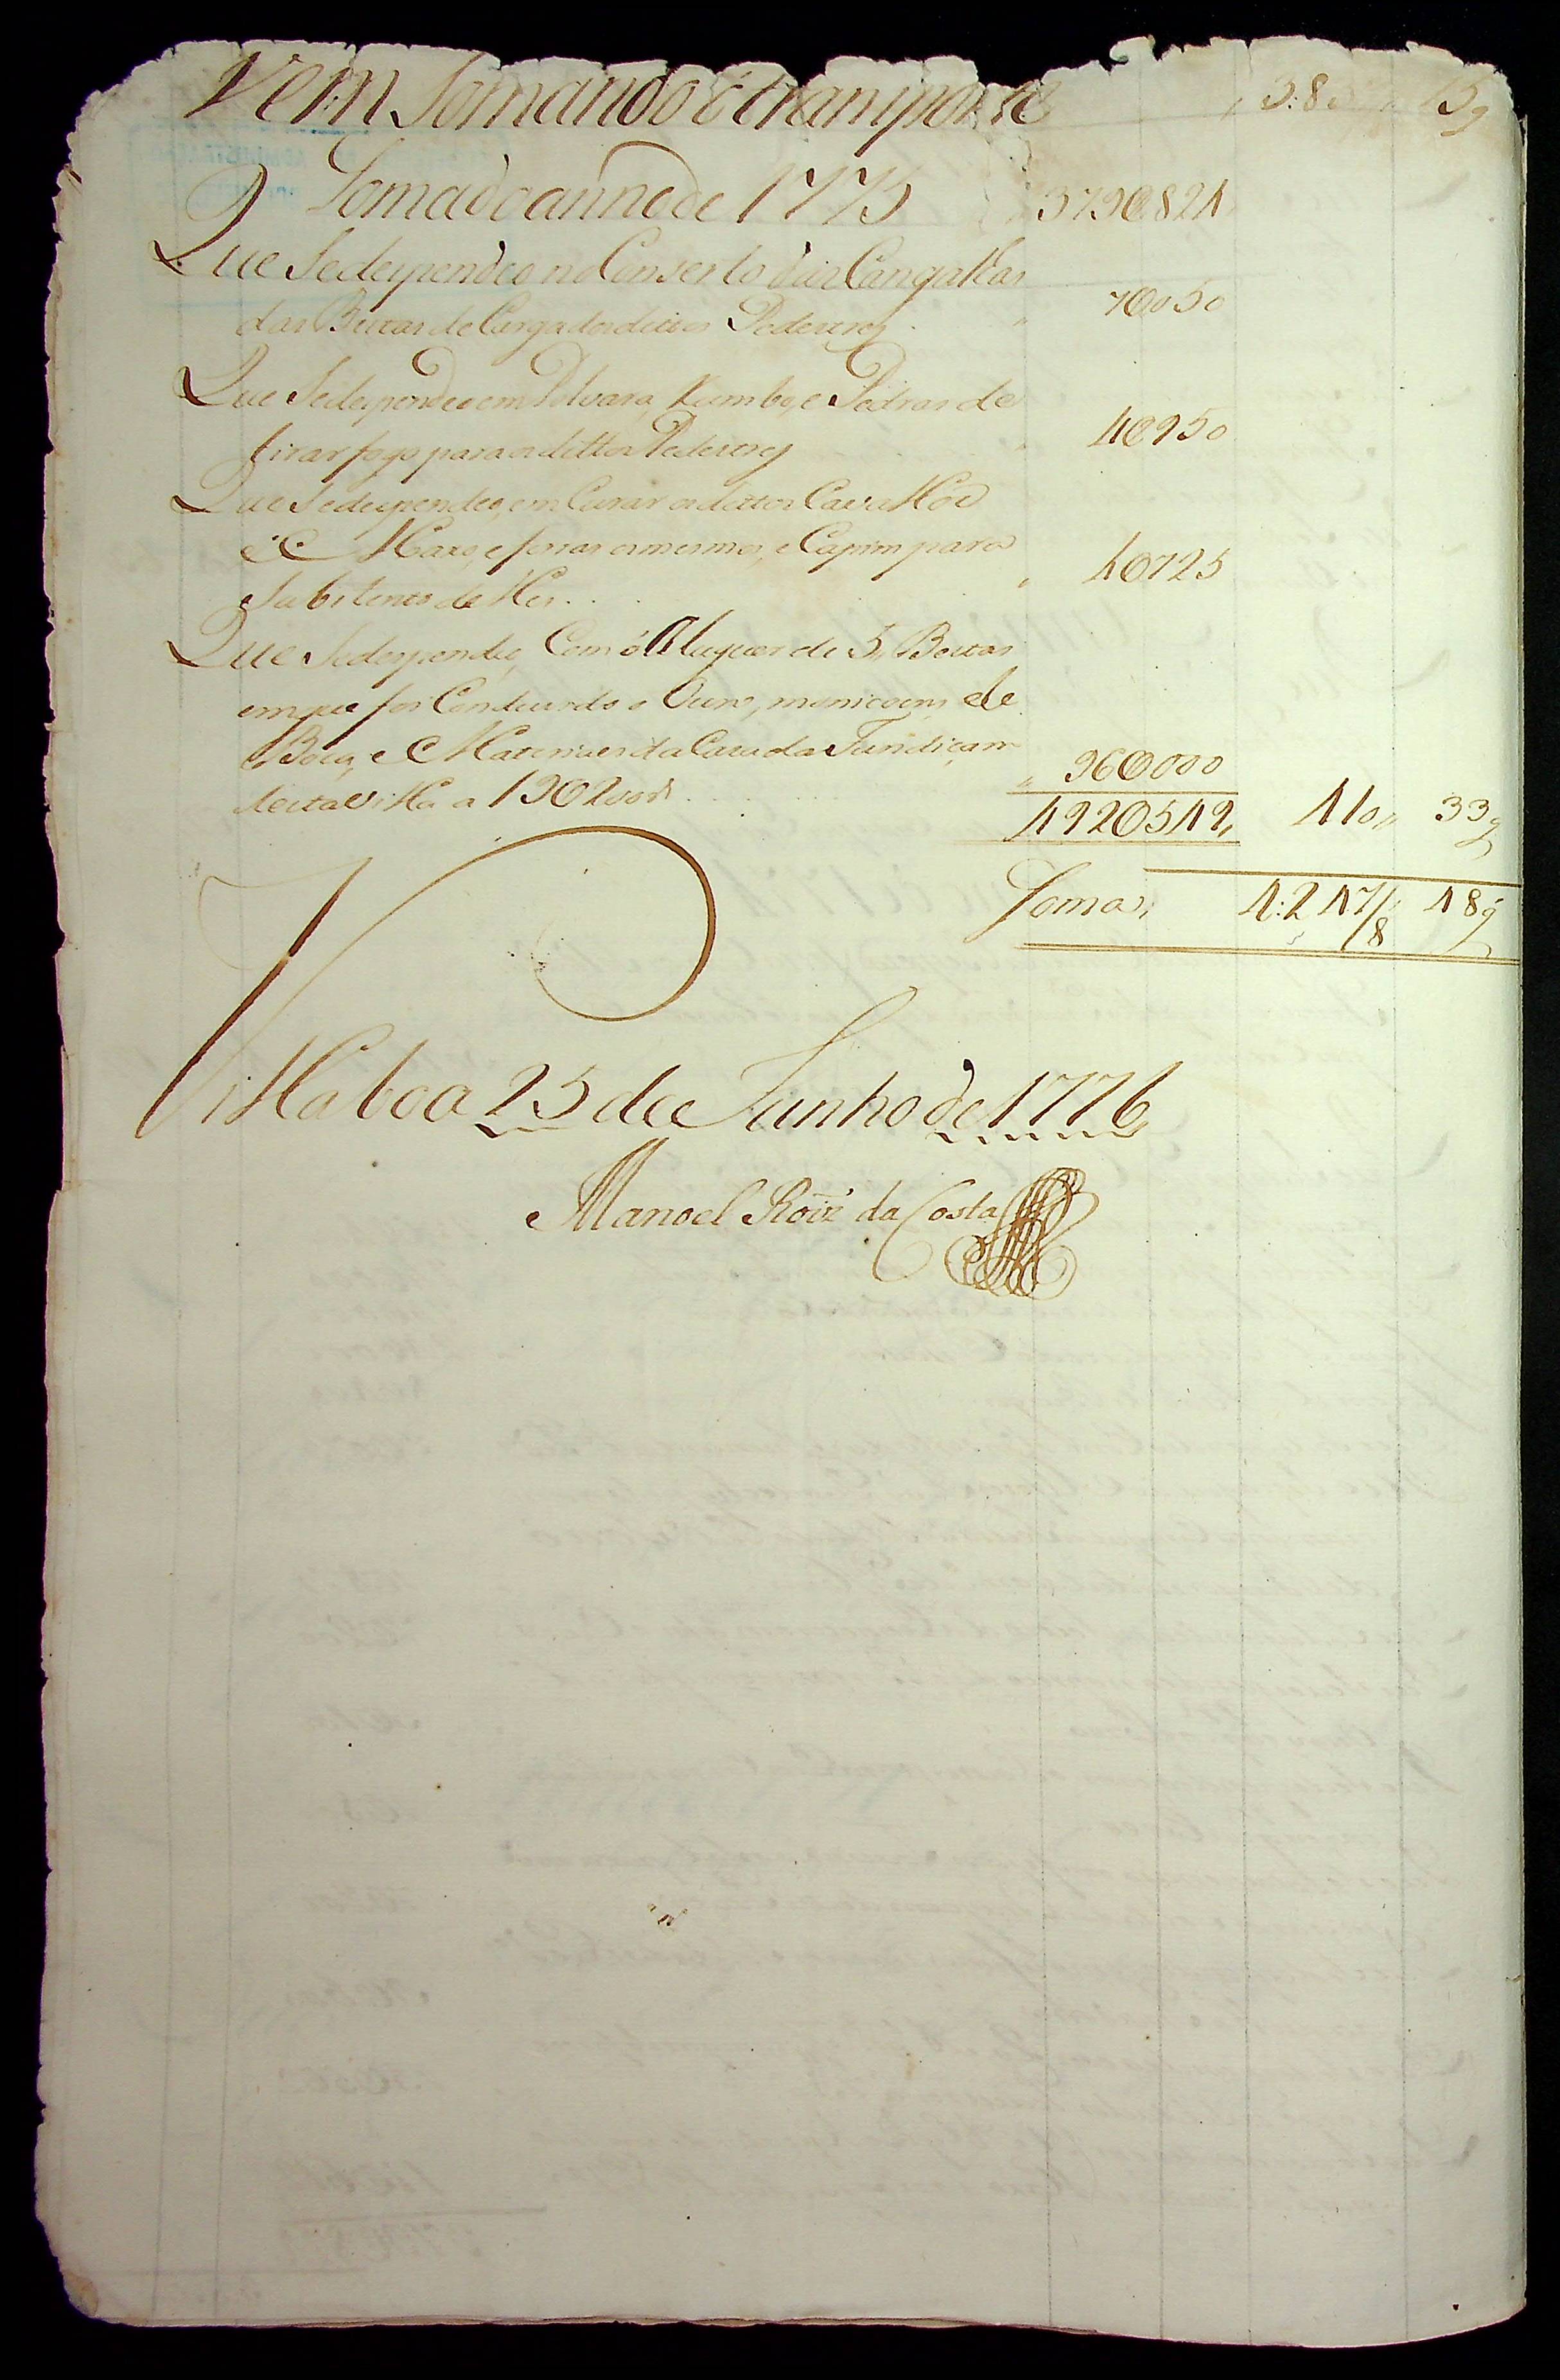 Vem Somando e transporte 3:83 15g
Soma do anno de 1775 379$824
Que Se despendeo no Conserto das Cangalhas
das Bestas de Carga dos dittos Pedestres 7$050
Que Se despendeo em Polvara, Xumbo, e Pedras de
tirar fogo para os dittos Pedestres 4$950
Que Se despendeo, em Curar os dittos Cavallos
e Maxo, e ferrar os mesmos, e Capim para o
Subistento delles 4$725
Que Se despendeo, Com o Aluguer de 5,, Bestas
em que foi Conduzido o Ouro, municoens de
Boca, e Materiaes da Caza da Fundiçam
desta Villa a 19$200 rs 96$000
492$549 410,, 33g
Soma; 4:247/8 48g
Villa boa 25 de Junho de 1776
Manoel Roiz da Costa